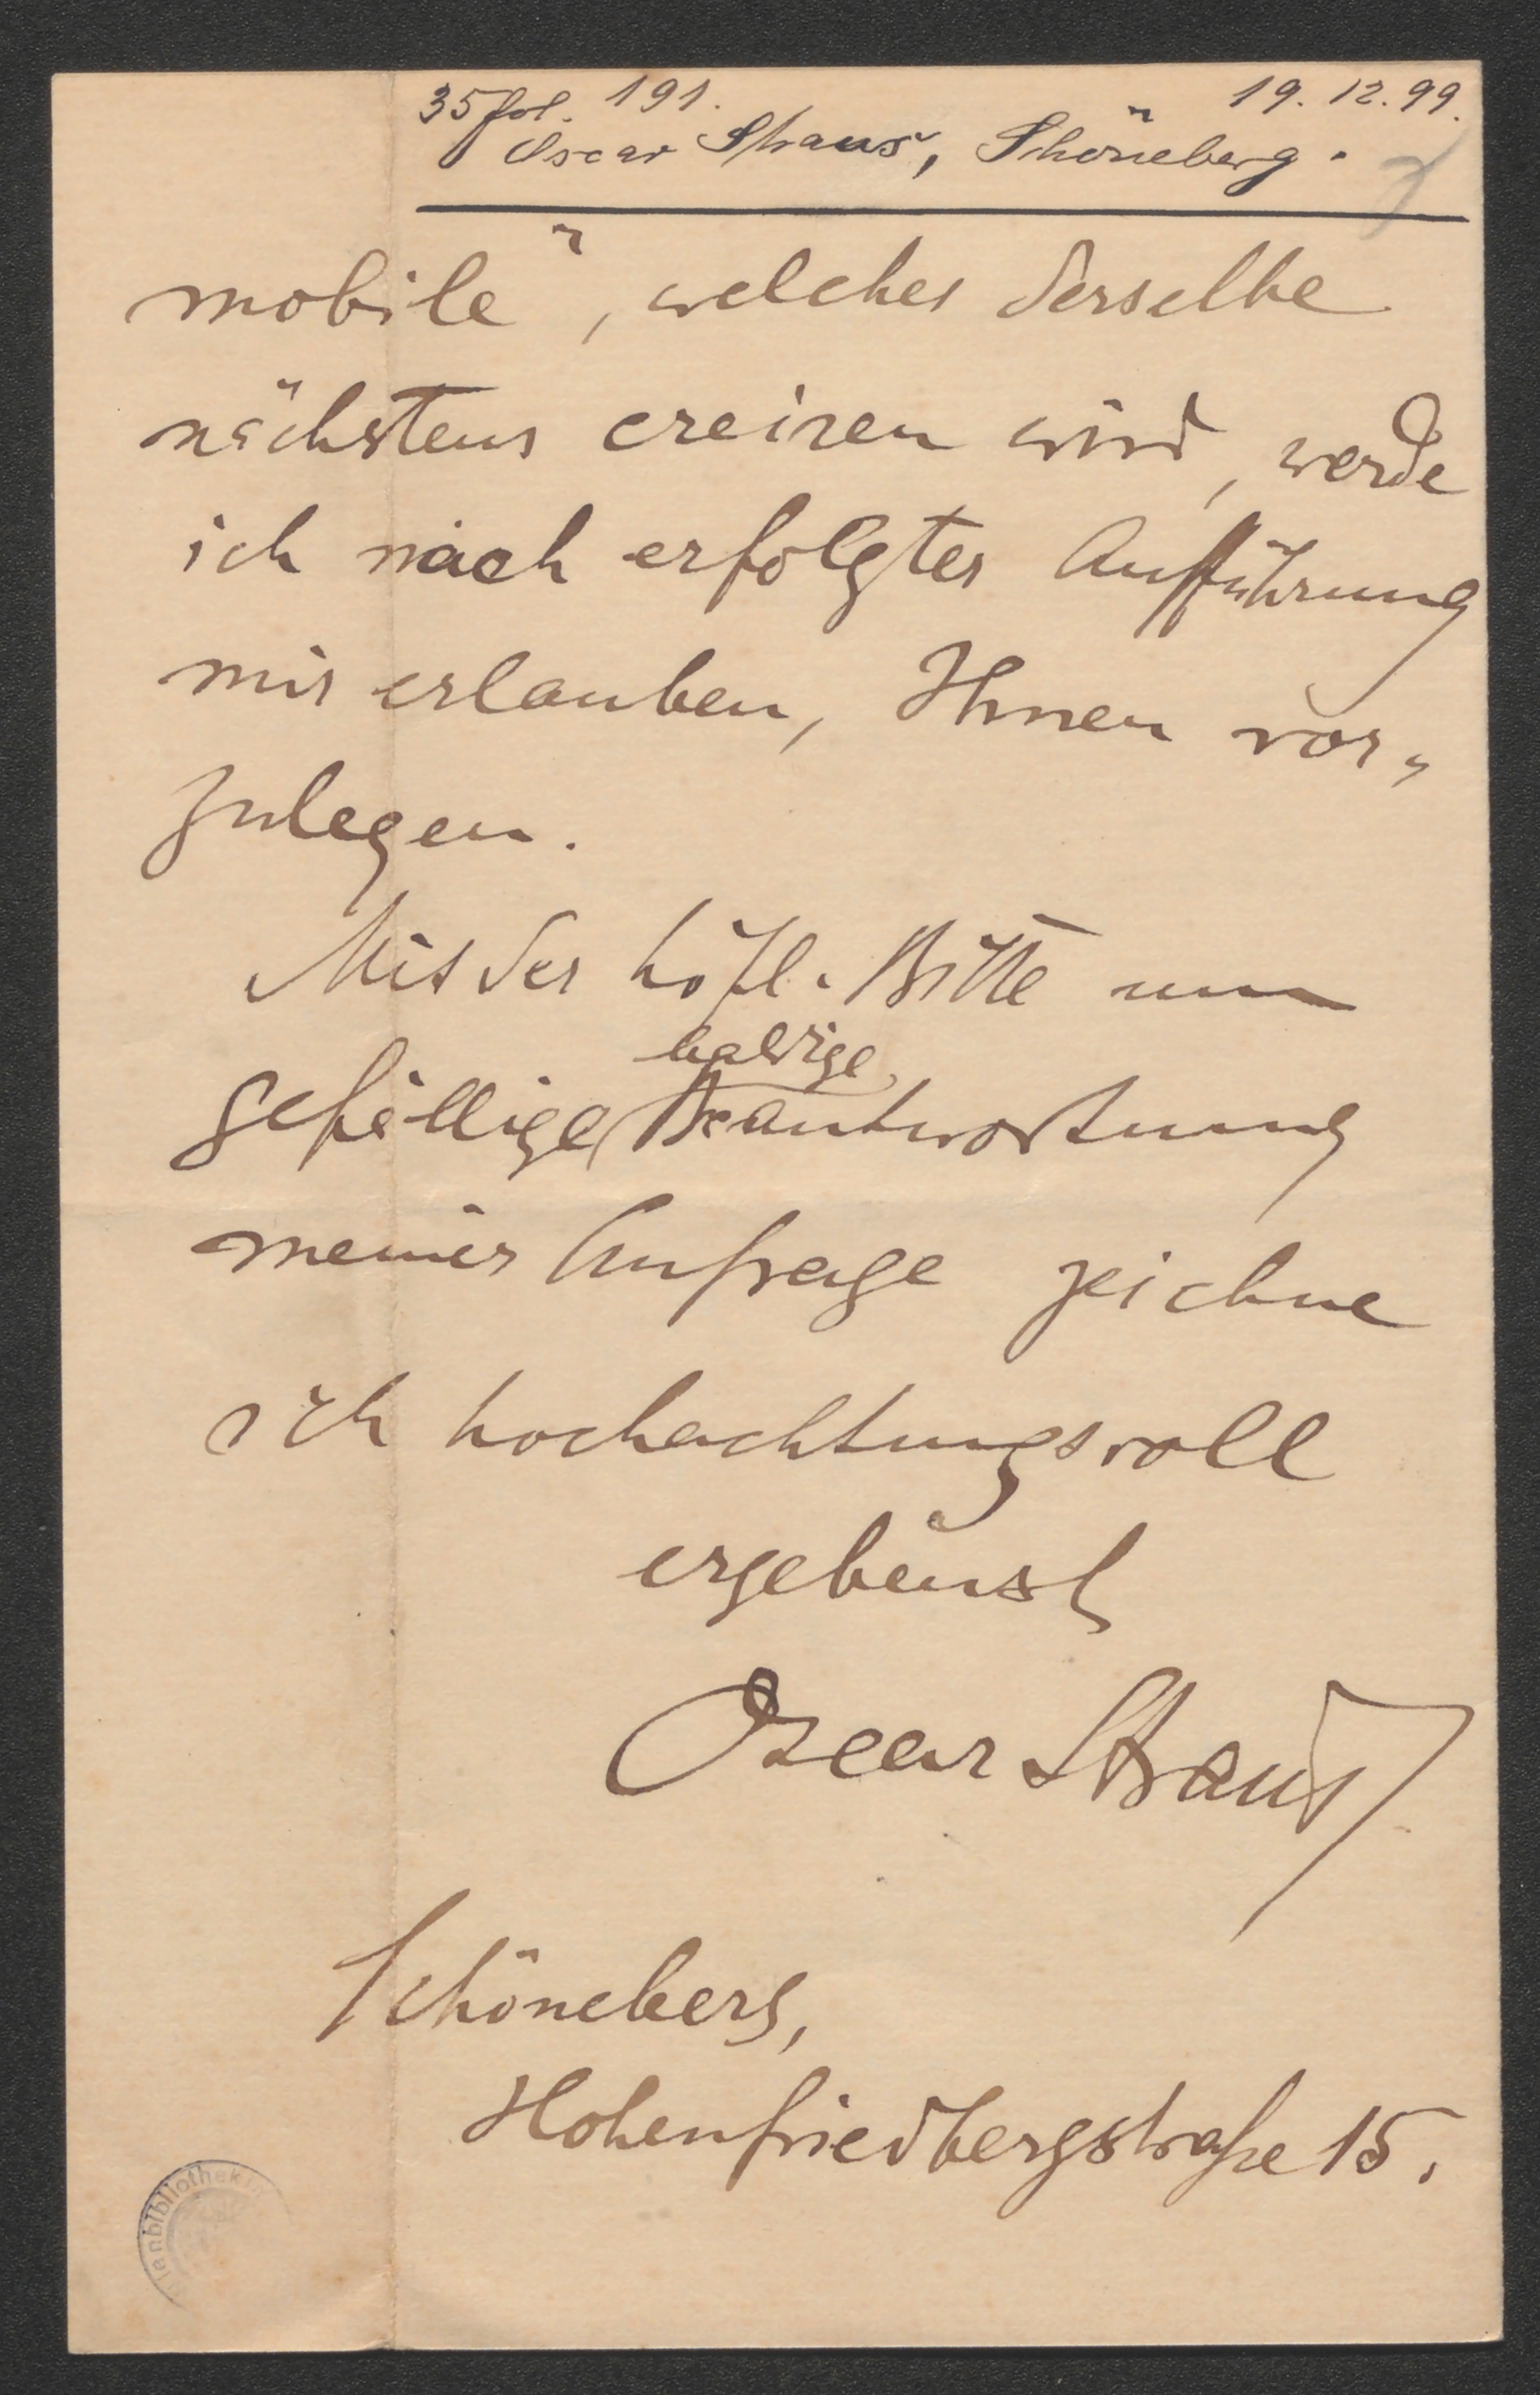 35 fol. 191. 19. 12. 99.
Oscar Straus, Schöneberg.
mobile", welches derselbe
nächstens creiren wird, werde
ich nach erfolgter Aufführung
mir erlauben, Ihnen vor-
zulegen.
Mit der höfl. Bitte um
baldige
gefällige Beantwortung
meiner Anfrage zeichne
ich hochachtungsvoll
ergebenst
Oscar Straus
Schöneberg,
Hohenfriedbergstraße 15.